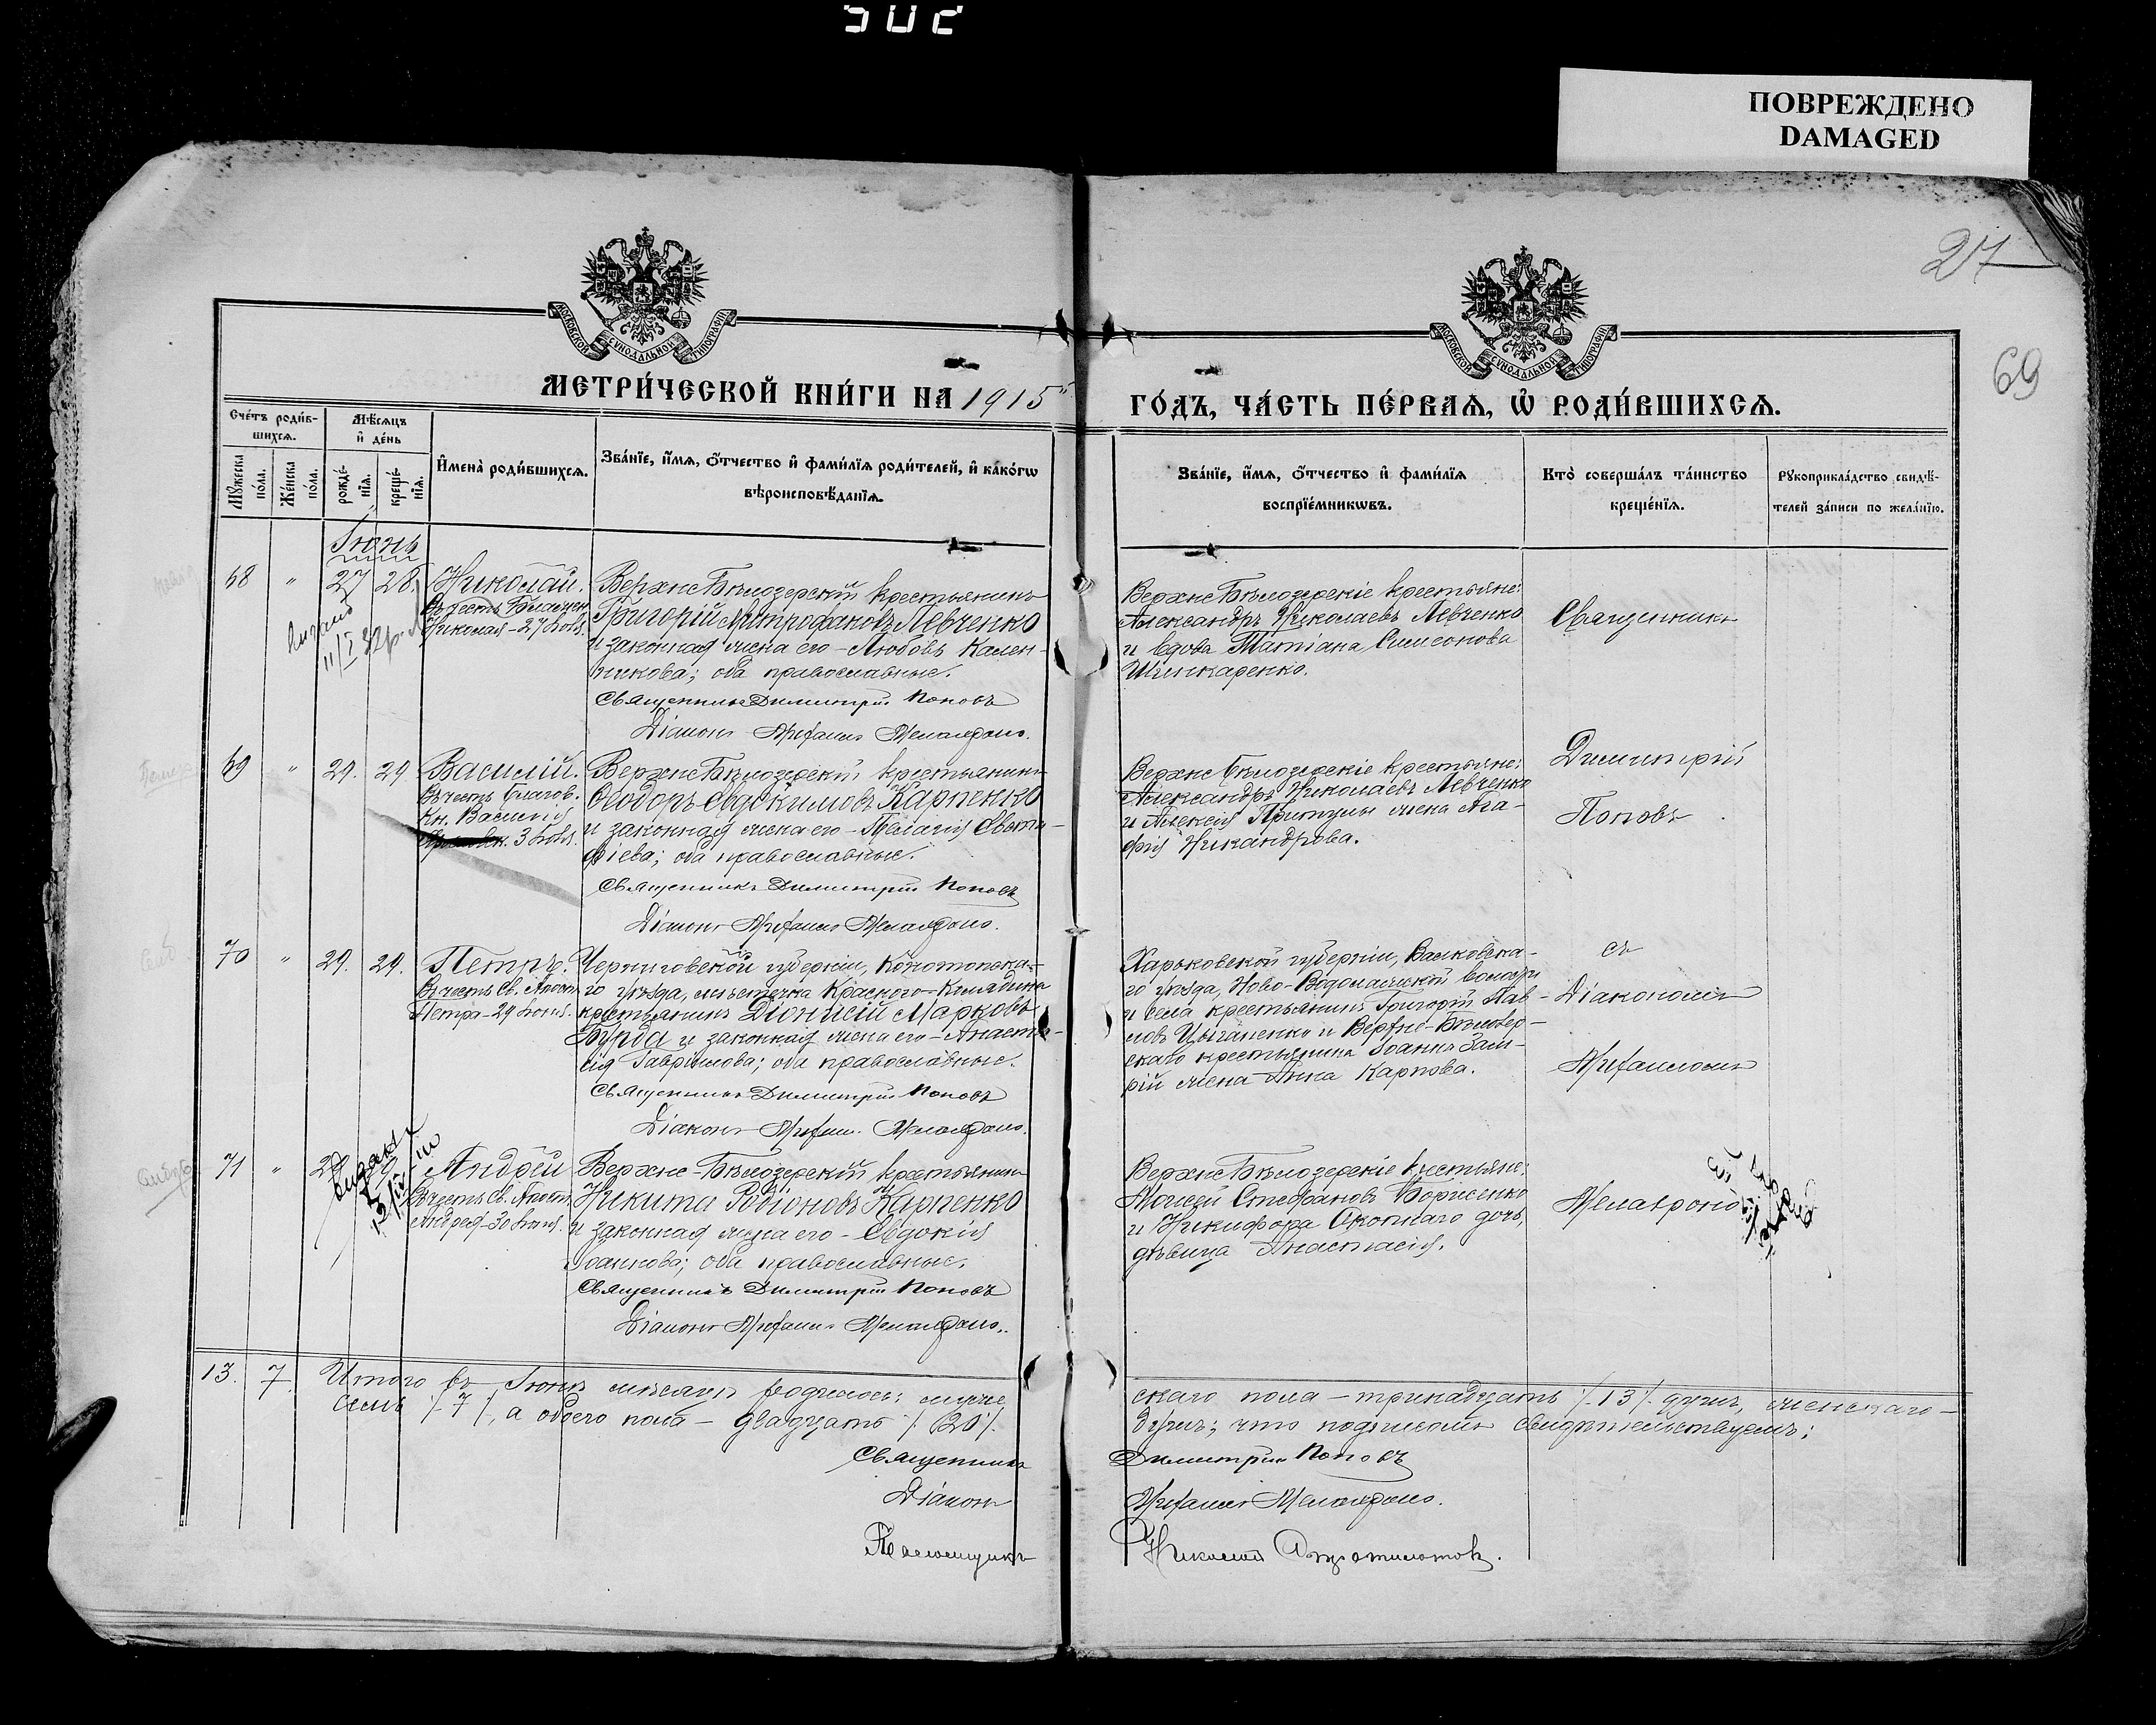 502
ПОВРЕЖДЕНО
DAMAGED
27
69
МОСКОВСКОЙ СѴНОДАЛЬНОЙ ТИПОГРАФІИ
МОСКОВСКОЙ СѴНОДАЛЬНОЙ ТИПОГРАФІИ
МЕТРИ́ЧЕСКОЙ КНИ́ГИ НА 1915й
ГО́ДЪ, ЧА́СТЬ ПЕ́РВАѦ, Ѡ҆ РОДИ́ВШИХСѦ.
Сче́тъ роди́в-
шихсѧ.
Мꙋ́жеска
по́ла.
Же́нска
по́ла.
Мѣ́сѧцъ
и҆ де́нь
рожде́-
нїѧ.
креще́-
нїѧ.
И҆мена̀ роди́вшихсѧ.
Зва́нїе, и҆́мѧ, ѻ҆́тчество и҆ фами́лїѧ роди́телей, и҆ како́гѡ
вѣроисповѣ́данїѧ.
Зва́нїе, и҆́мѧ, ѻ҆́тчество и҆ фами́лїѧ
воспрїе́мникѡвъ.
Кто̀ соверша́лъ та́инство
креще́нїѧ.
Рꙋкоприкла́дство свидѣ́-
телей за́писи по жела́нїю.
Іюнь
68 " 27 28. Николай.
Въ честь
Николая - 27 Іюля.
11/I 32 р.
Верхне Бѣлозерскій крестьянинъ
Григорій Митрофановъ Левченко
и законная жена его - Любовь Кален-
никова; оба православные.
Священникъ Димитрій Поповъ
Діаконъ
Верхне Бѣлозерскіе крестьяне:
Александръ Николаевъ Левченко
и вдова Татіана Симеонова
Шинкаренко.
Священникъ
69 " 29. 29 Василій.
Въ честь благов.
Кн. Василія
3 Іюля.
Верхне Бѣлозерскій крестьянинъ
Ѳеодоръ Евдокимовъ Карпенко
и законная жена его - Пелагія Евсти-
фіева; оба православные.
Священникъ Димитрій Поповъ
Діаконъ
Верхне Бѣлозерскіе крестьяне:
Александръ Николаевъ Левченко
и Алексія Притулы жена Ага-
фія Никандрова.
Димитрій
Поповъ
70 " 29. 29. Петръ.
Въ честь Св. Апост.
Петра - 29 Іюня.
Черниговской губерніи, Конотопска-
го уѣзда, мѣстечка Краснаго-Колядина
крестьянинъ Діонисій Марковъ
Бурда и законная жена его - Анаста-
сія Гаврилова; оба православные.
Священникъ Димитрій Поповъ
Діаконъ
Харьковской губерніи, Валковска-
го уѣзда, Ново-Водолажской волости
и села крестьянинъ Григорій Пав-
ловъ Цыганенко и Верхне-Бѣлозер-
скаго крестьянина Іоанна
жена Анна Карпова.
съ
Діакономъ
71 " 29 Андрей
Въ честь Св. Апост.
Андрея - 30 Іюня.
Верхне-Бѣлозерскій крестьянинъ
Никита Родіоновъ Карпенко
и законная жена его - Евдокія
Іоаннова; оба православные.
Священникъ Димитрій Поповъ
Діаконъ
Верхне Бѣлозерскіе крестьяне:
Моисей Стефановъ Борисенко
и Никифора Скопнаго дочь,
дѣвица Анастасія.
13. 7. Итого въ Іюнѣ мѣсяцѣ родилось: муже-
скаго пола - тринадцать /.13/. душъ, женскаго -
семь /.7/., а обоего пола - двадцать /.20/.
душъ; что подписомъ свидѣтельствуемъ:
Священникъ Димитрій Поповъ
Діаконъ
Псаломщикъ Николай